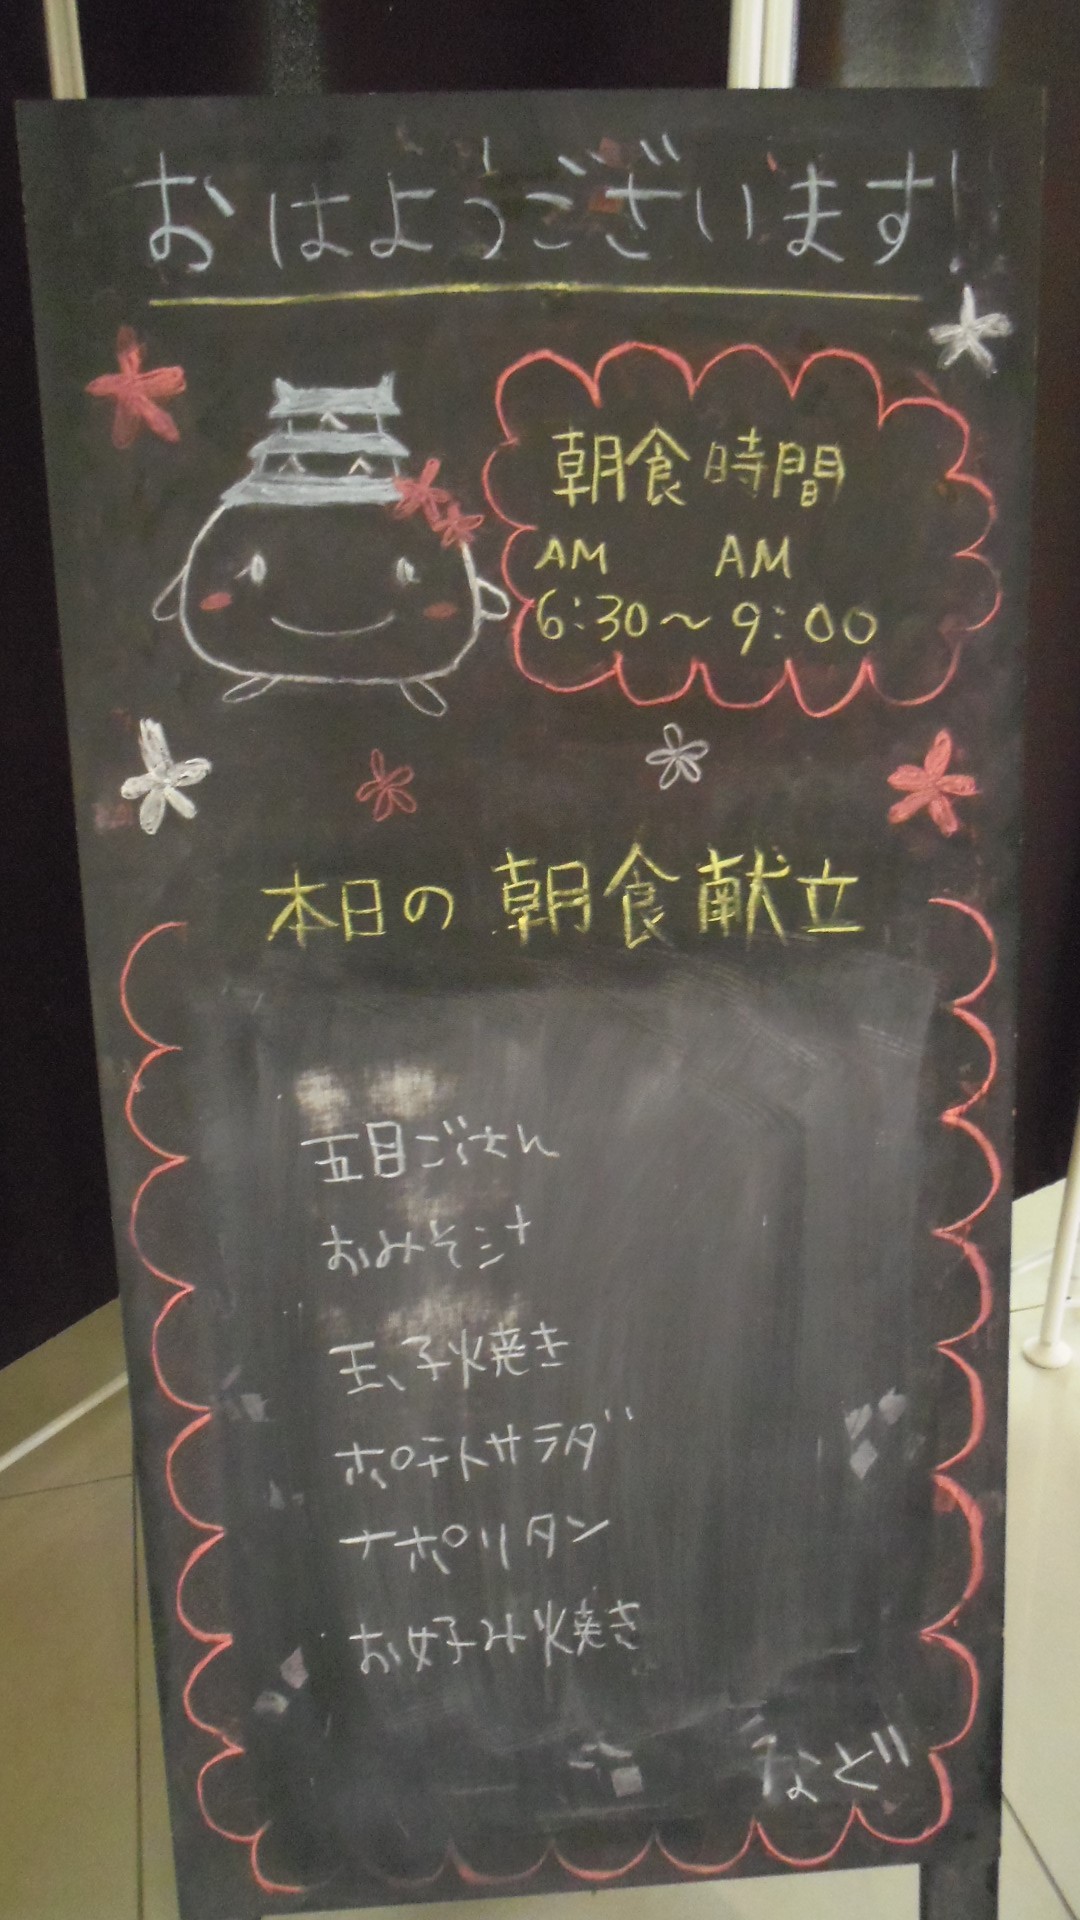 おはようございます!
朝食時間
AM AM
6:30～9:00
本日の朝食献立
五目ごはん
おみそ汁
玉子焼き
ポテトサラダ
ナポリタン
お好み焼き
など